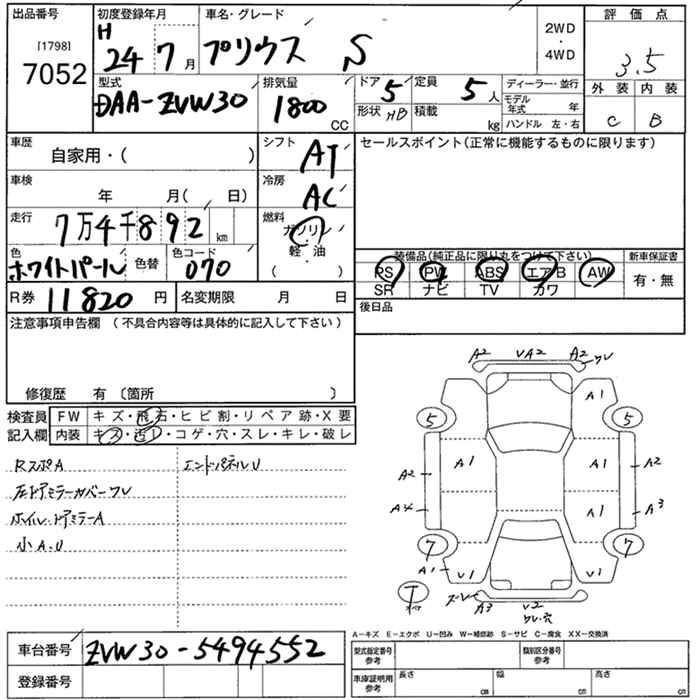 出品番号 初度登録年月 車名・グレード 2WD・4WD 評価点
[1798]
7052
H 24 7月 プリウス S 3.5
型式 排気量 ドア 5 定員 5人 ディーラー・並行 外装 内装
DAA-ZVW30 1800 CC 形状 HB 積載 kg モデル年式 年
ハンドル 左・右 C B
車歴 自家用・( ) シフト AT セールスポイント(正常に機能するものに限ります)
車検 年 月( 日) 冷房 AC
走行 7万4千892 km 燃料 ガソリン 軽・油 ( )
色 ホワイトパール 色替 色コード 070
装備品(純正品に限り丸をつけて下さい) 新車保証書
PS PW ABS エアB AW 有・無
SR ナビ TV カワ
R券 11820円 名変期限 月 日 後日品
注意事項申告欄 (不具合内容等は具体的に記入して下さい)
修復歴 有 〔箇所 〕
検査員記入欄 FW キズ・飛石・ヒビ割・リペア跡・X要
内装 キズ・汚レ・コゲ・穴・スレ・キレ・破レ
RスポA エンドパネルU
左ドアミラーカバーワレ
ホイル、ドアミラーA
小A.U
A2 VA2 A2 ワレ
A1
5 5
A1 A1
A2 A2
A4 A1 A3
7 7
A1 V1 V1
A3 V2
ワレ・穴
A-キズ E-エクボ U-凹み W-補修跡 S-サビ C-腐食 XX-交換済
車台番号 ZVW30-5494552
型式指定番号 参考 類別区分番号 参考
登録番号
車庫証明用 参考 長さ cm 幅 cm 高さ cm